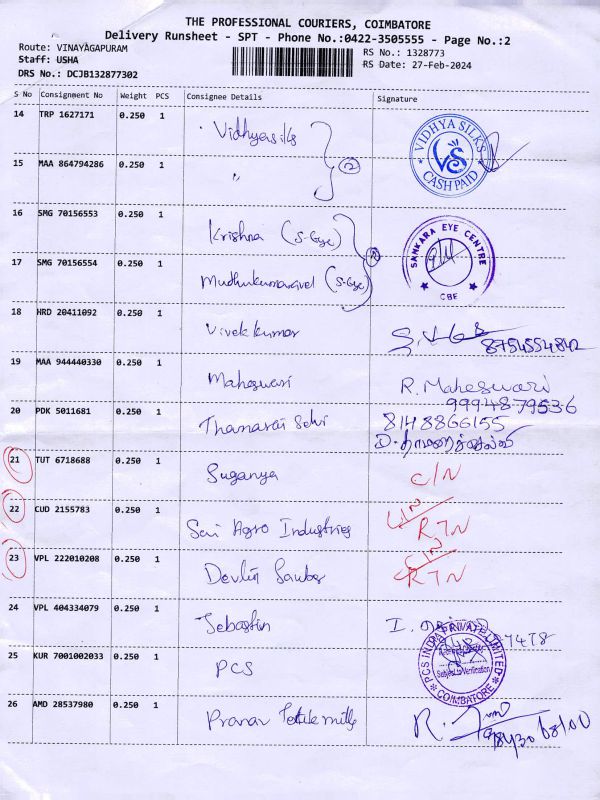 THE PROFESSIONAL COURIERS, COIMBATORE
Delivery Runsheet - SPT - Phone No.:0422-3505555 - Page No.:2
Route: VINAYAGAPURAM
RS No.: 1328773
Staff: USHA
RS Date: 27-Feb-2024
DRS No.: DCJB132877302
S No Consignment No Weight PCS Consignee Details Signature
14 TRP 1627171 0.250 1 Vidhyasilks VIDHYA SILKS VS CASH PAID
15 MAA 864794286 0.250 1 " 2
16 SMG 70156553 0.250 1 Krishna (S-Eye) SANKARA EYE CENTRE CBE
17 SMG 70156554 0.250 1 Mudhukumaravel (S-Eye)
18 HRD 20411092 0.250 1 Vivek kumar 8754554842
19 MAA 944440330 0.250 1 Maheswari R. Maheswari
9994879536
20 PDK 5011681 0.250 1 Thamarai Selvi 8148866155
D. தாமரைச்செல்வி
21 TUT 6718688 0.250 1 Suganya C/N
22 CUD 2155783 0.250 1 Sai Agro Industries C/N RTN
23 VPL 222010208 0.250 1 Devlin C/N RTN
24 VPL 404334079 0.250 1 Sebastin I. 7478
25 KUR 7001002033 0.250 1 PCS PCS INDIA PRIVATE LIMITED Subject to Verification COIMBATORE
26 AMD 28537980 0.250 1 Pranav Textile mills R.